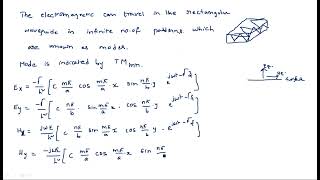 The electromagnetic can travel in the rectangular
waveguide in infinite no. of patterns which
are known as modes.
Mode is indicated by TM mn.
Ex = -Γ/h² [ C mπ/a cos mπ/a x sin nπ/b y e^(jωt-Γz)
Ey = -Γ/h² [ C nπ/b . sin mπ/a x cos nπ/b y . e^(jωt-Γz)
Hx = jωε/h² [ C nπ/b sin mπ/a x cos nπ/b y . e^(jωt-Γz)
Hy = -jωε/h² [ C mπ/a cos mπ/a x sin nπ/b